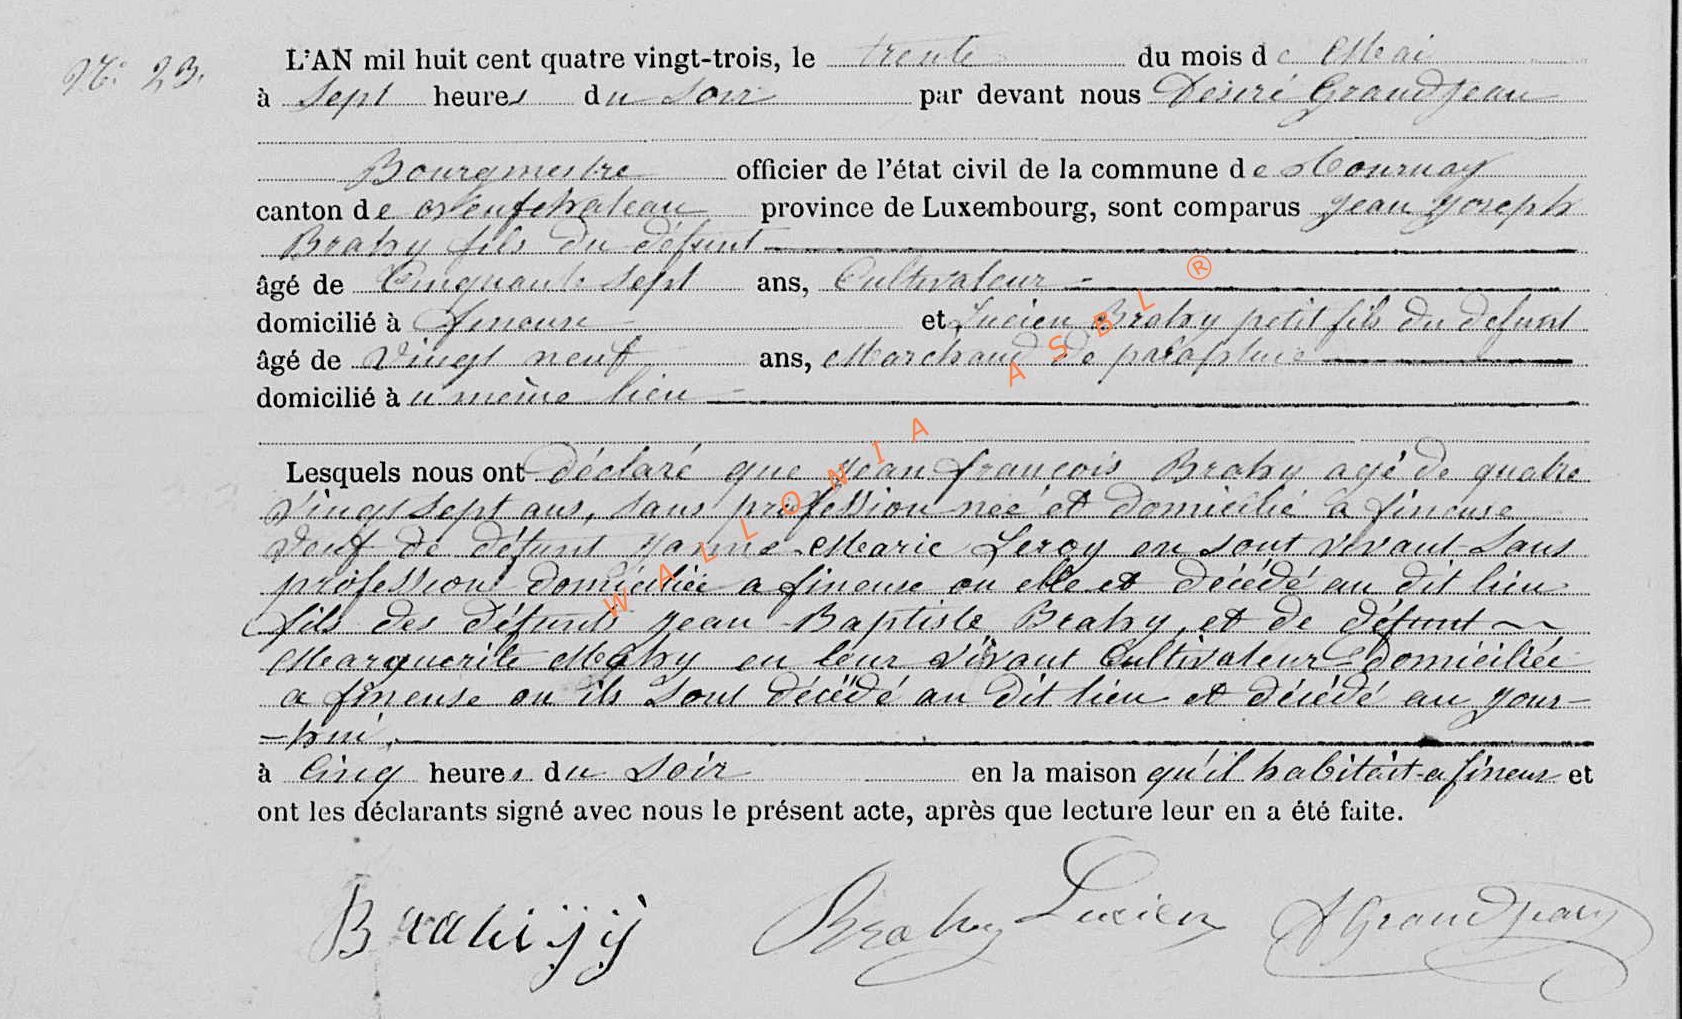 N.º 23.
L'AN mil huit cent quatre vingt-trois, le trente du mois de Mai
à sept heures du soir par devant nous Désiré Grandjean
Bourgmestre officier de l'état civil de la commune de Tournay
canton de Neufchateau province de Luxembourg, sont comparus Jean Joseph
Brahy fils du défunt
âgé de Cinquante sept ans, Cultivateur
domicilié à fineuse et Lucien Brahy petit fils du defunt
âgé de vingt neuf ans, Marchand de parapluie
domicilié à u même lieu
Lesquels nous ont déclaré que Jean françois Brahy agé de quatre
vingt sept ans, sans profession née et domicilié à fineuse
veuf de défunt Marie Leroy en sont vivant sans
profession domiciliée a fineuse ou elle et décédé au dit lieu
fils des défunts Jean-Baptiste Brahy, et de défunt
Marguerite Mahy en leur vivant Cultivateur domiciliée
a fineuse ou ils sont décédé au dit lieu et décédé au jour-
-hui,
à Cinq heures du soir en la maison qu'il habitait a fineus et
ont les déclarants signé avec nous le présent acte, après que lecture leur en a été faite.
Brahy Lucien DGrandjean
WALLONIA ASBL ®